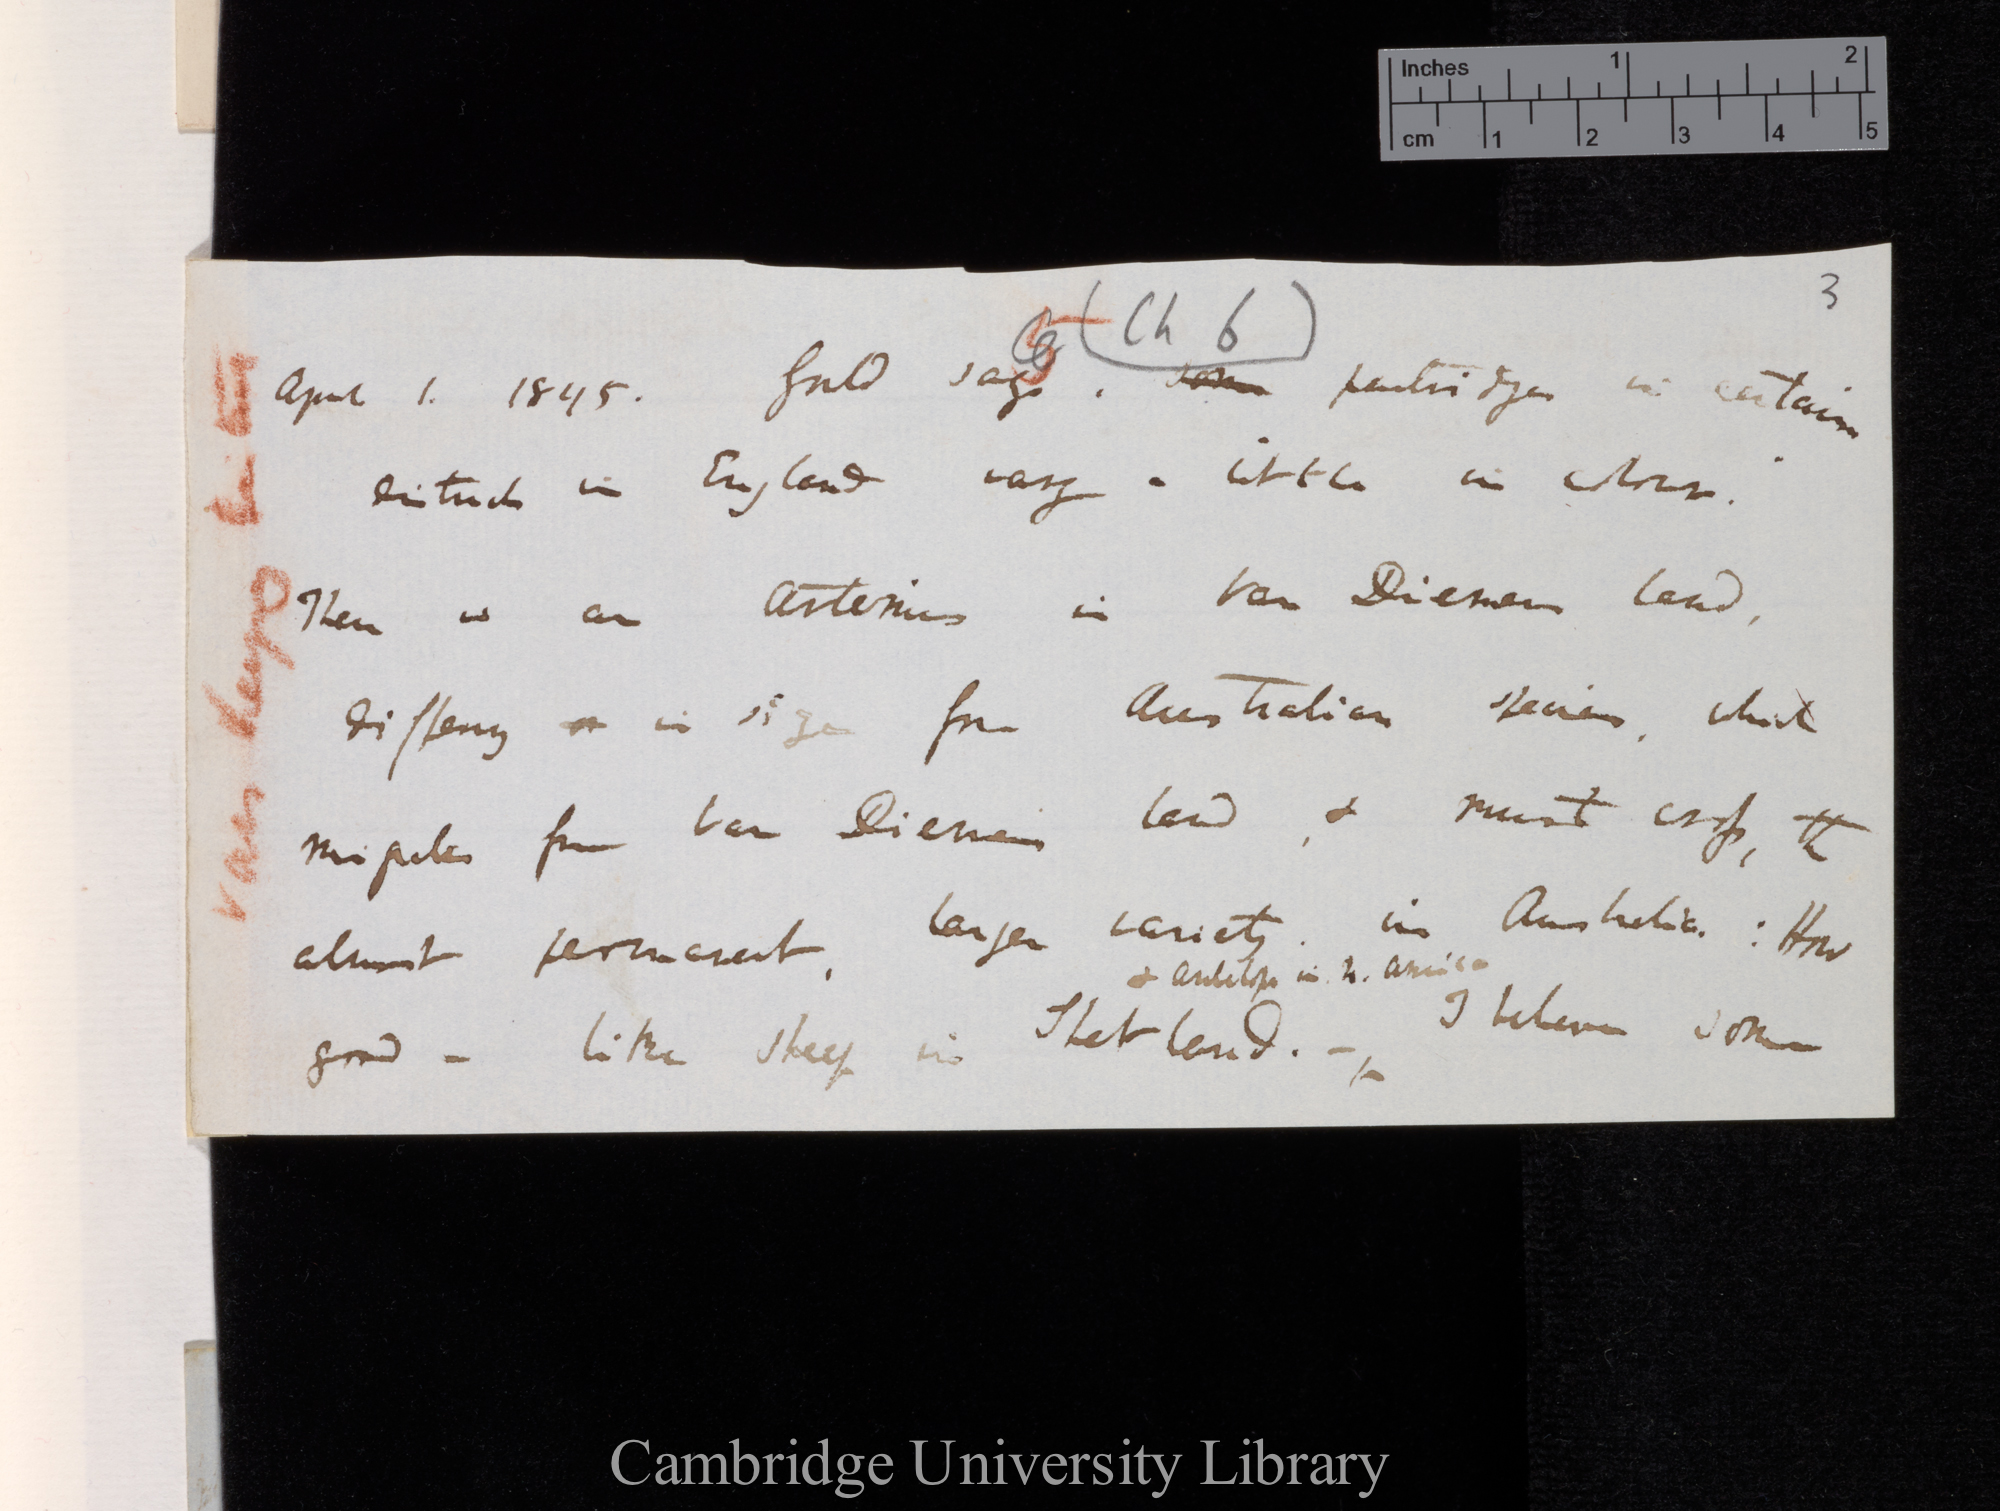 Inches 1 2
cm 1 2 3 4 5
3
(Ch 6)
5
April 1. 1845. Gould says, some partridges in certain
districts in England vary a little in colour.
There is an Artemus in Van Diemen land,
differing in size from Australian species, which
migrates from Van Diemen land, & must cross, the
almost permanent, larger variety. in Australia: How
& antelope in N. America
good – like sheep in Shetland. – I believe some
Van Diemen
Cambridge University Library